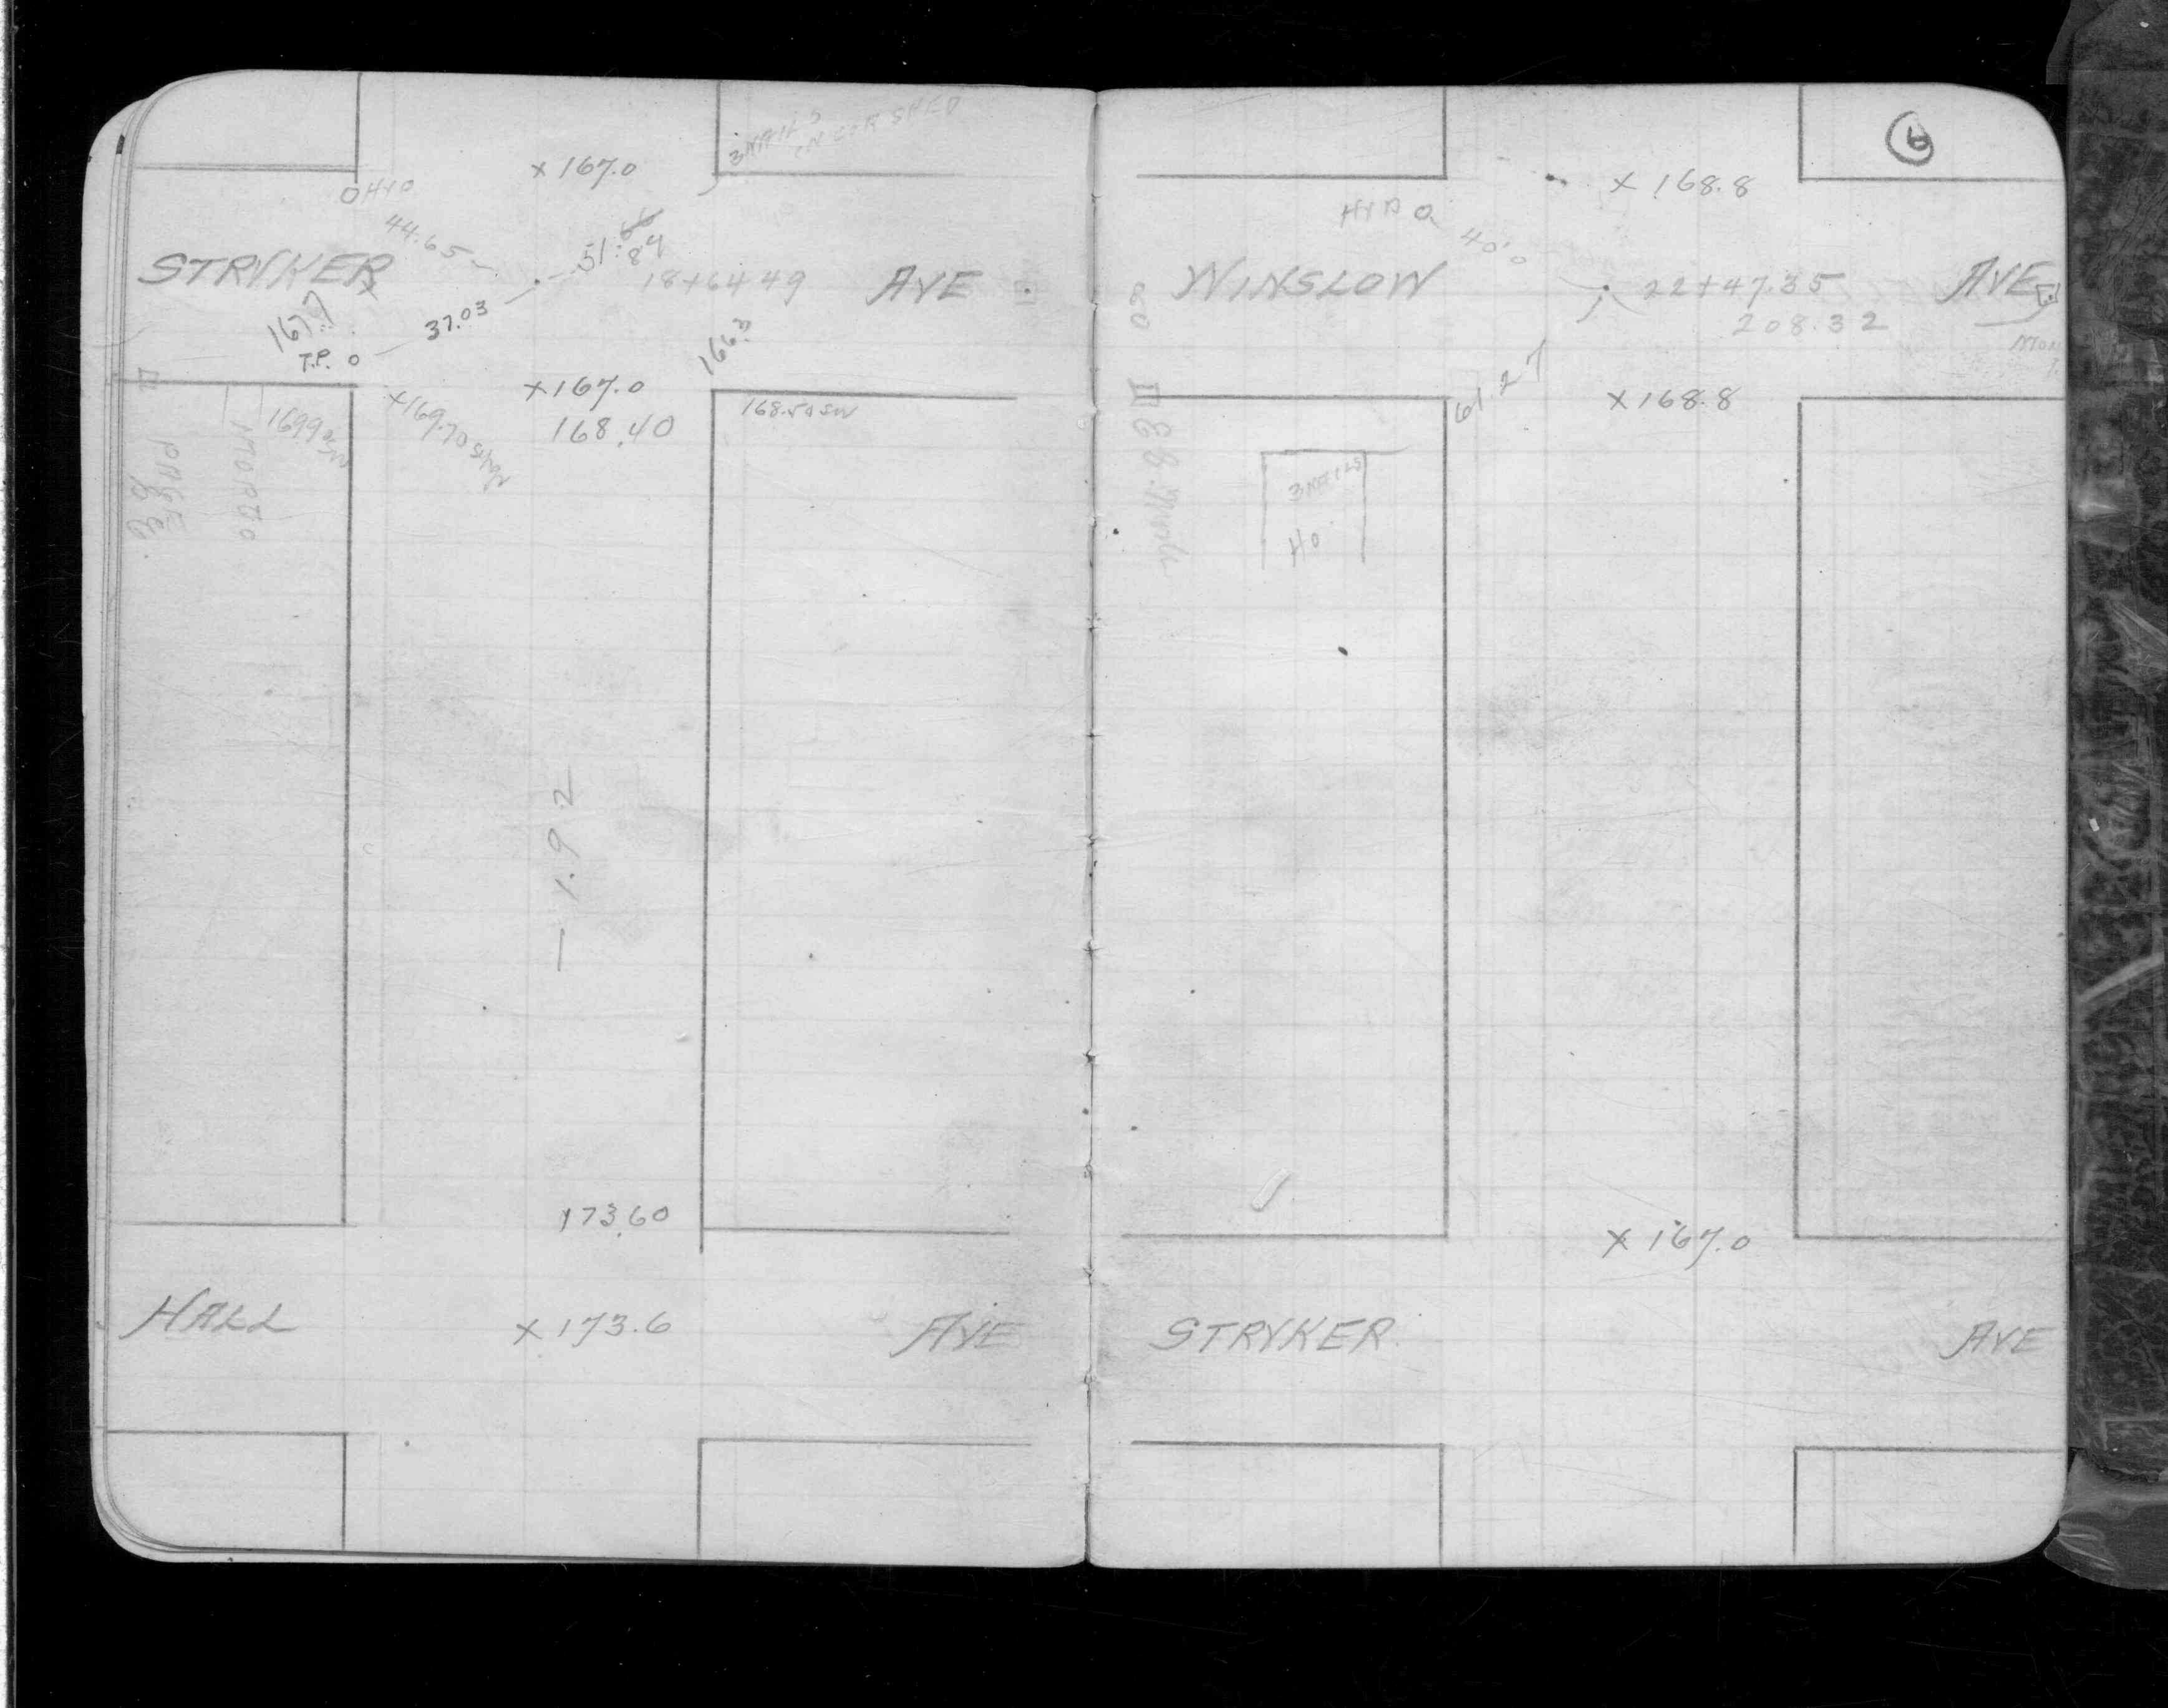 3 NAILS
IN COR SHED
× 167.0
OHYD
44.65
51.84
STRYKER
18+64.49
AVE
167.7
37.03
T.P.
166.2
× 167.0
168.40
168.50 SW
×169.70
PAGE
- 1.92
173.60
HALL
× 173.6
AVE
6
× 168.8
HYD
40.0
WINSLOW
22+47.35
AVE
208.32
MON
61.27
× 168.8
3 NAILS
HO
× 167.0
STRYKER
AVE